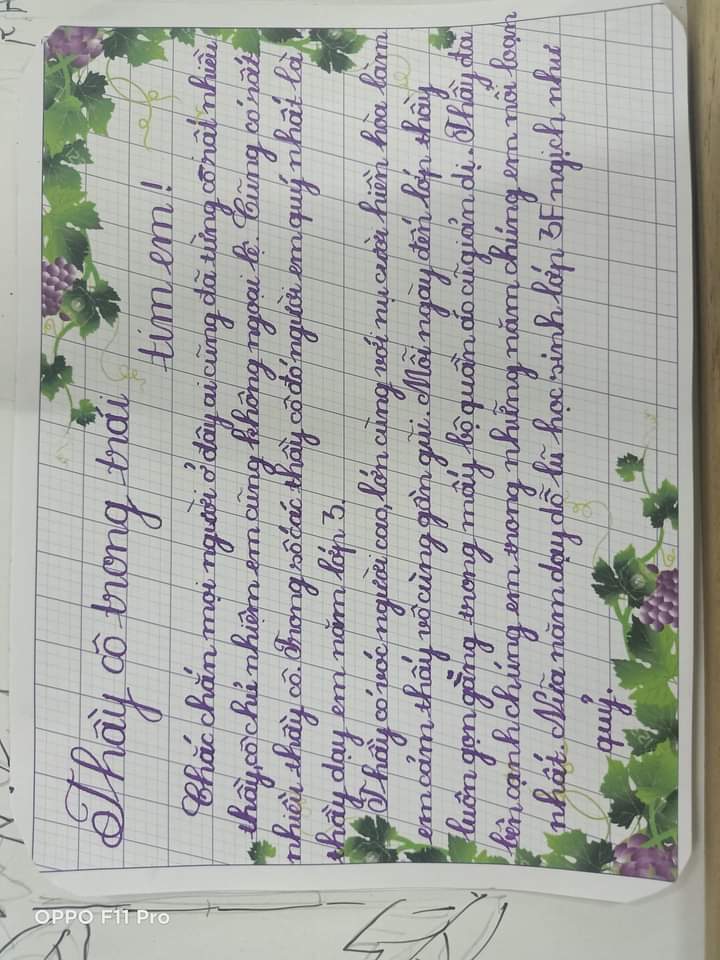 Thầy cô trong trái
tim em!
Chắc chắn mọi người ở đây ai cũng đã từng có rất nhiều
thầy, cô chủ nhiệm em cũng không ngoại lệ. Cũng có rất
nhiều thầy cô. Trong số các thầy cô đó người em quý nhất là
thầy dạy em năm lớp 3.
Thầy có vóc người cao, lớn cùng với nụ cười hiền hòa làm
em cảm thấy vô cùng gần gũi. Mỗi ngày đến lớp thầy
luôn gọn gàng trong mấy bộ quần áo cũ giản dị. Thầy đã
bên cạnh chúng em trong những năm chúng em nổi loạn
nhất. Nửa năm dạy dỗ lũ học sinh lớp 3F ngịch như
quỷ.
OPPO F11 Pro